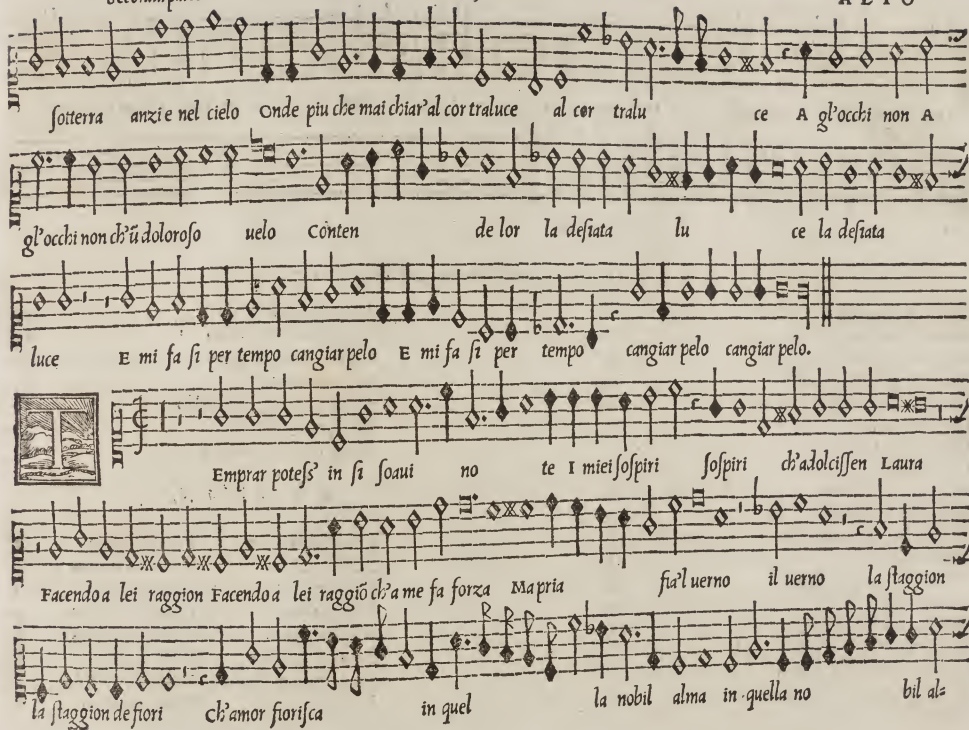 ALTO
sotterra anzi e nel cielo Onde piu che mai chiar'al cor traluce al cor tralu ce A gl'occhi non A
gl'occhi non ch'ũ doloroso uelo Conten de lor la desiata lu ce la desiata
luce E mi fa si per tempo cangiar pelo E mi fa si per tempo cangiar pelo cangiar pelo.
TEmprar potess' in si soaui no te I miei sospiri sospiri ch'adolcissen Laura
Facendo a lei raggion Facendo a lei raggiõ ch'a me fa forza Ma pria fia'l uerno il uerno la staggion
la staggion de fiori Ch'amor fiorisca in quel la nobil alma in quella no bil al=